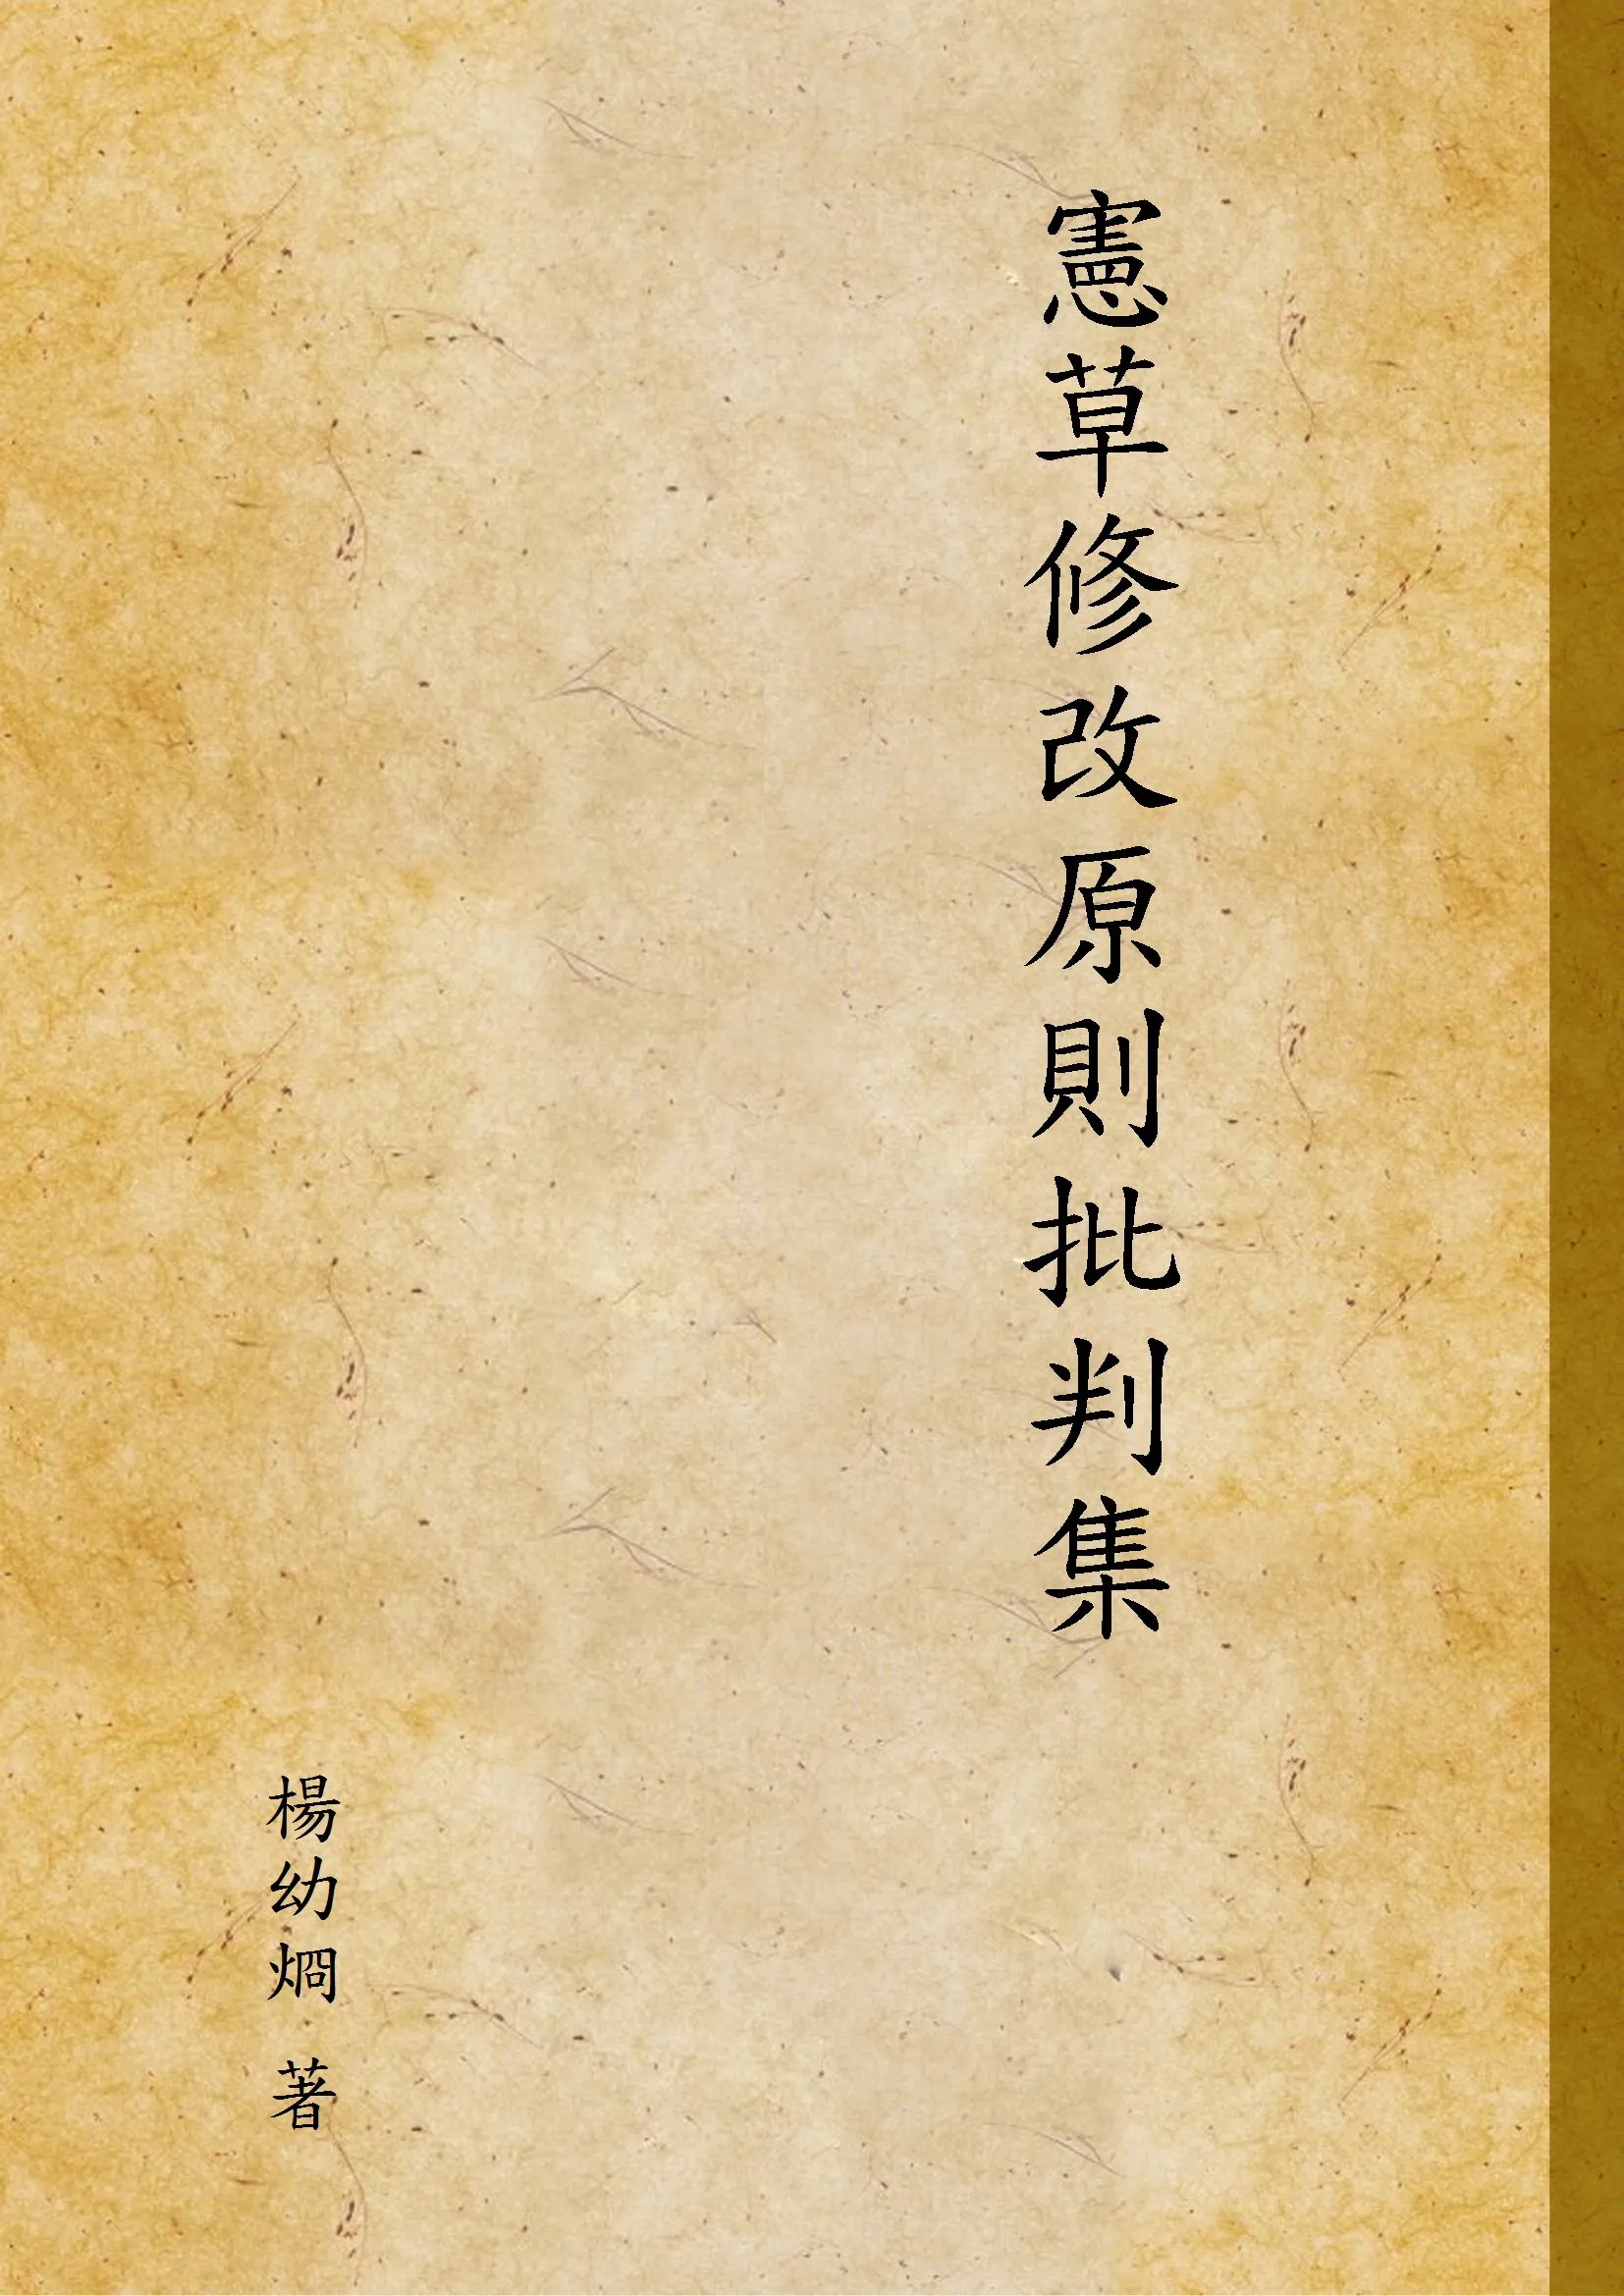 憲草修改原則批判集
楊幼炯 著